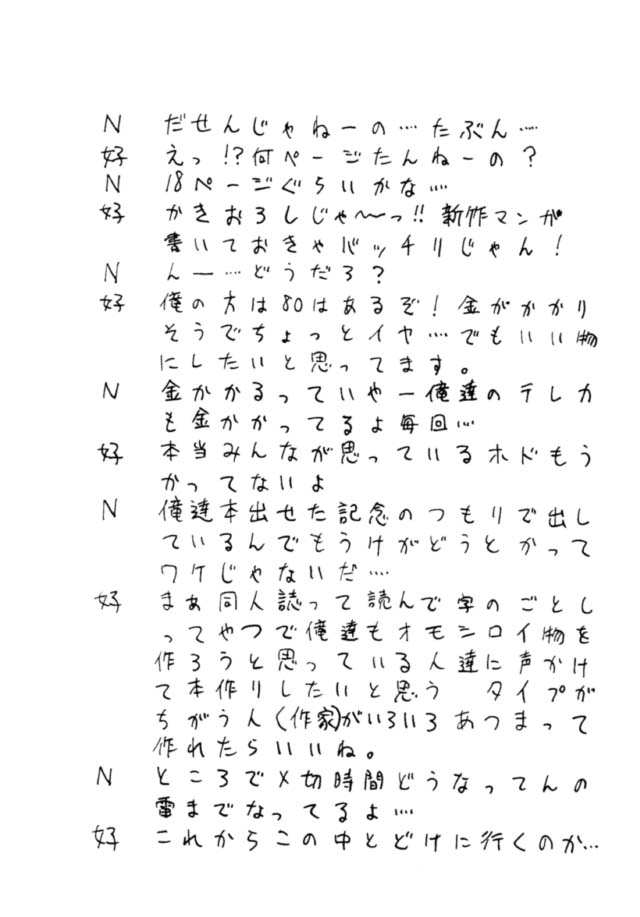 N だせんじゃねーの…たぶん…
好 えっ!?何ページたんねーの?
N 18ページぐらいかな…
好 かきおろしじゃ〜っ!!新作マンガ
書いておきゃバッチリじゃん!
N んー…どうだろ?
好 俺の方は80はあるぞ!金がかかり
そうでちょっとイヤ…でもいい物
にしたいと思ってます。
N 金かかるっていやー俺達のテレカ
も金かかってるよ毎回…
好 本当みんなが思っているホドもう
かってないよ
N 俺達本出せた記念のつもりで出し
ているんでもうけがどうとかって
ワケじゃないだ…
好 まぁ同人誌って読んで字のごとし
ってやつで俺達もオモシロイ物を
作ろうと思っている人達に声かけ
て本作りしたいと思う タイプが
ちがう人(作家)がいろいろあつまって
作れたらいいね。
N ところで〆切時間どうなってんの
雷までなってるよ…
好 これからこの中とどけに行くのか…